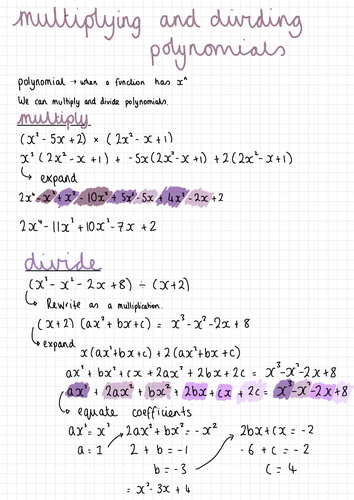 multiplying and dividing
polynomials
polynomial → when a function has xⁿ
We can multiply and divide polynomials.
multiply
(x² - 5x + 2) × (2x² - x + 1)
x² (2x² - x + 1) + -5x(2x² - x + 1) + 2(2x² - x + 1)
↳ expand
2x⁴ - x³ + x² - 10x³ + 5x² - 5x + 4x² - 2x + 2
2x⁴ - 11x³ + 10x² - 7x + 2
divide
(x³ - x² - 2x + 8) ÷ (x + 2)
↳ Rewrite as a multiplication.
(x + 2) (ax² + bx + c) = x³ - x² - 2x + 8
↳ expand
x(ax² + bx + c) + 2(ax² + bx + c)
ax³ + bx² + cx + 2ax² + 2bx + 2c = x³ - x² - 2x + 8
ax³ + 2ax² + bx² + 2bx + cx + 2c = x³ - x² - 2x + 8
↳ equate coefficients
ax³ = x³ 2ax² + bx² = -x² 2bx + cx = -2
a = 1 2 + b = -1 -6 + c = -2
b = -3 c = 4
= x² - 3x + 4